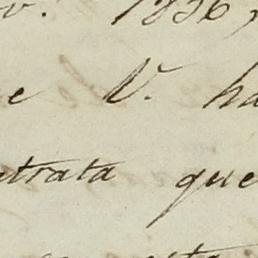 v. 1836,
e V. ha
trata que